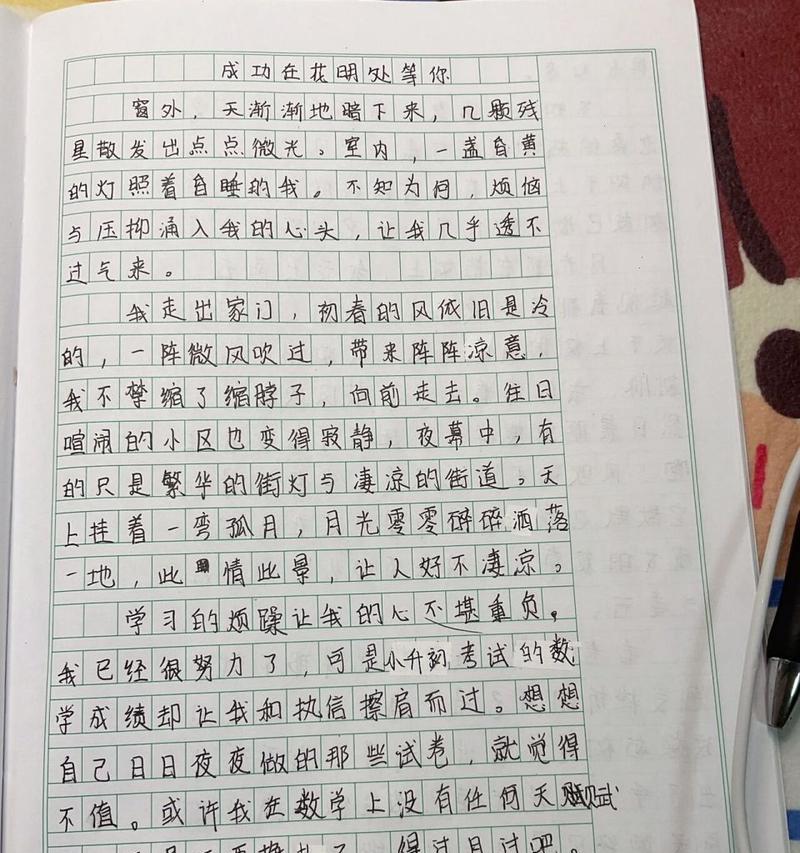 成功在花明处等你
窗外，天渐渐地暗下来，几颗残
星散发出点点微光。室内，一盏昏黄
的灯照着自睡的我。不知为何，烦恼
与压抑涌入我的心头，让我几乎透不
过气来。
我走出家门，初春的风依旧是冷
的，一阵微风吹过，带来阵阵凉意，
我不禁缩了缩脖子，向前走去。往日
喧闹的小区也变得寂静，夜幕中，有
的只是繁华的街灯与凄凉的街道。天
上挂着一弯孤月，月光零零碎碎洒落
一地，此情此景，让人好不凄凉。
学习的烦躁让我的心不堪重负。
我已经很努力了，可是小升初考试的数
学成绩却让我和执信擦肩而过。想想
自己日日夜夜做的那些试卷，就觉得
不值。或许我在数学上没有任何天赋
了，得过且过吧。